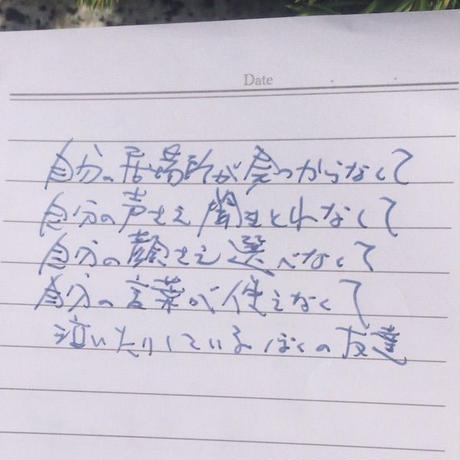 Date
自分の居場所が見つからなくて
自分の声さえ聞きとれなくて
自分の顔さえ選べなくて
自分の言葉が使えなくて
泣いたりしているぼくの友達